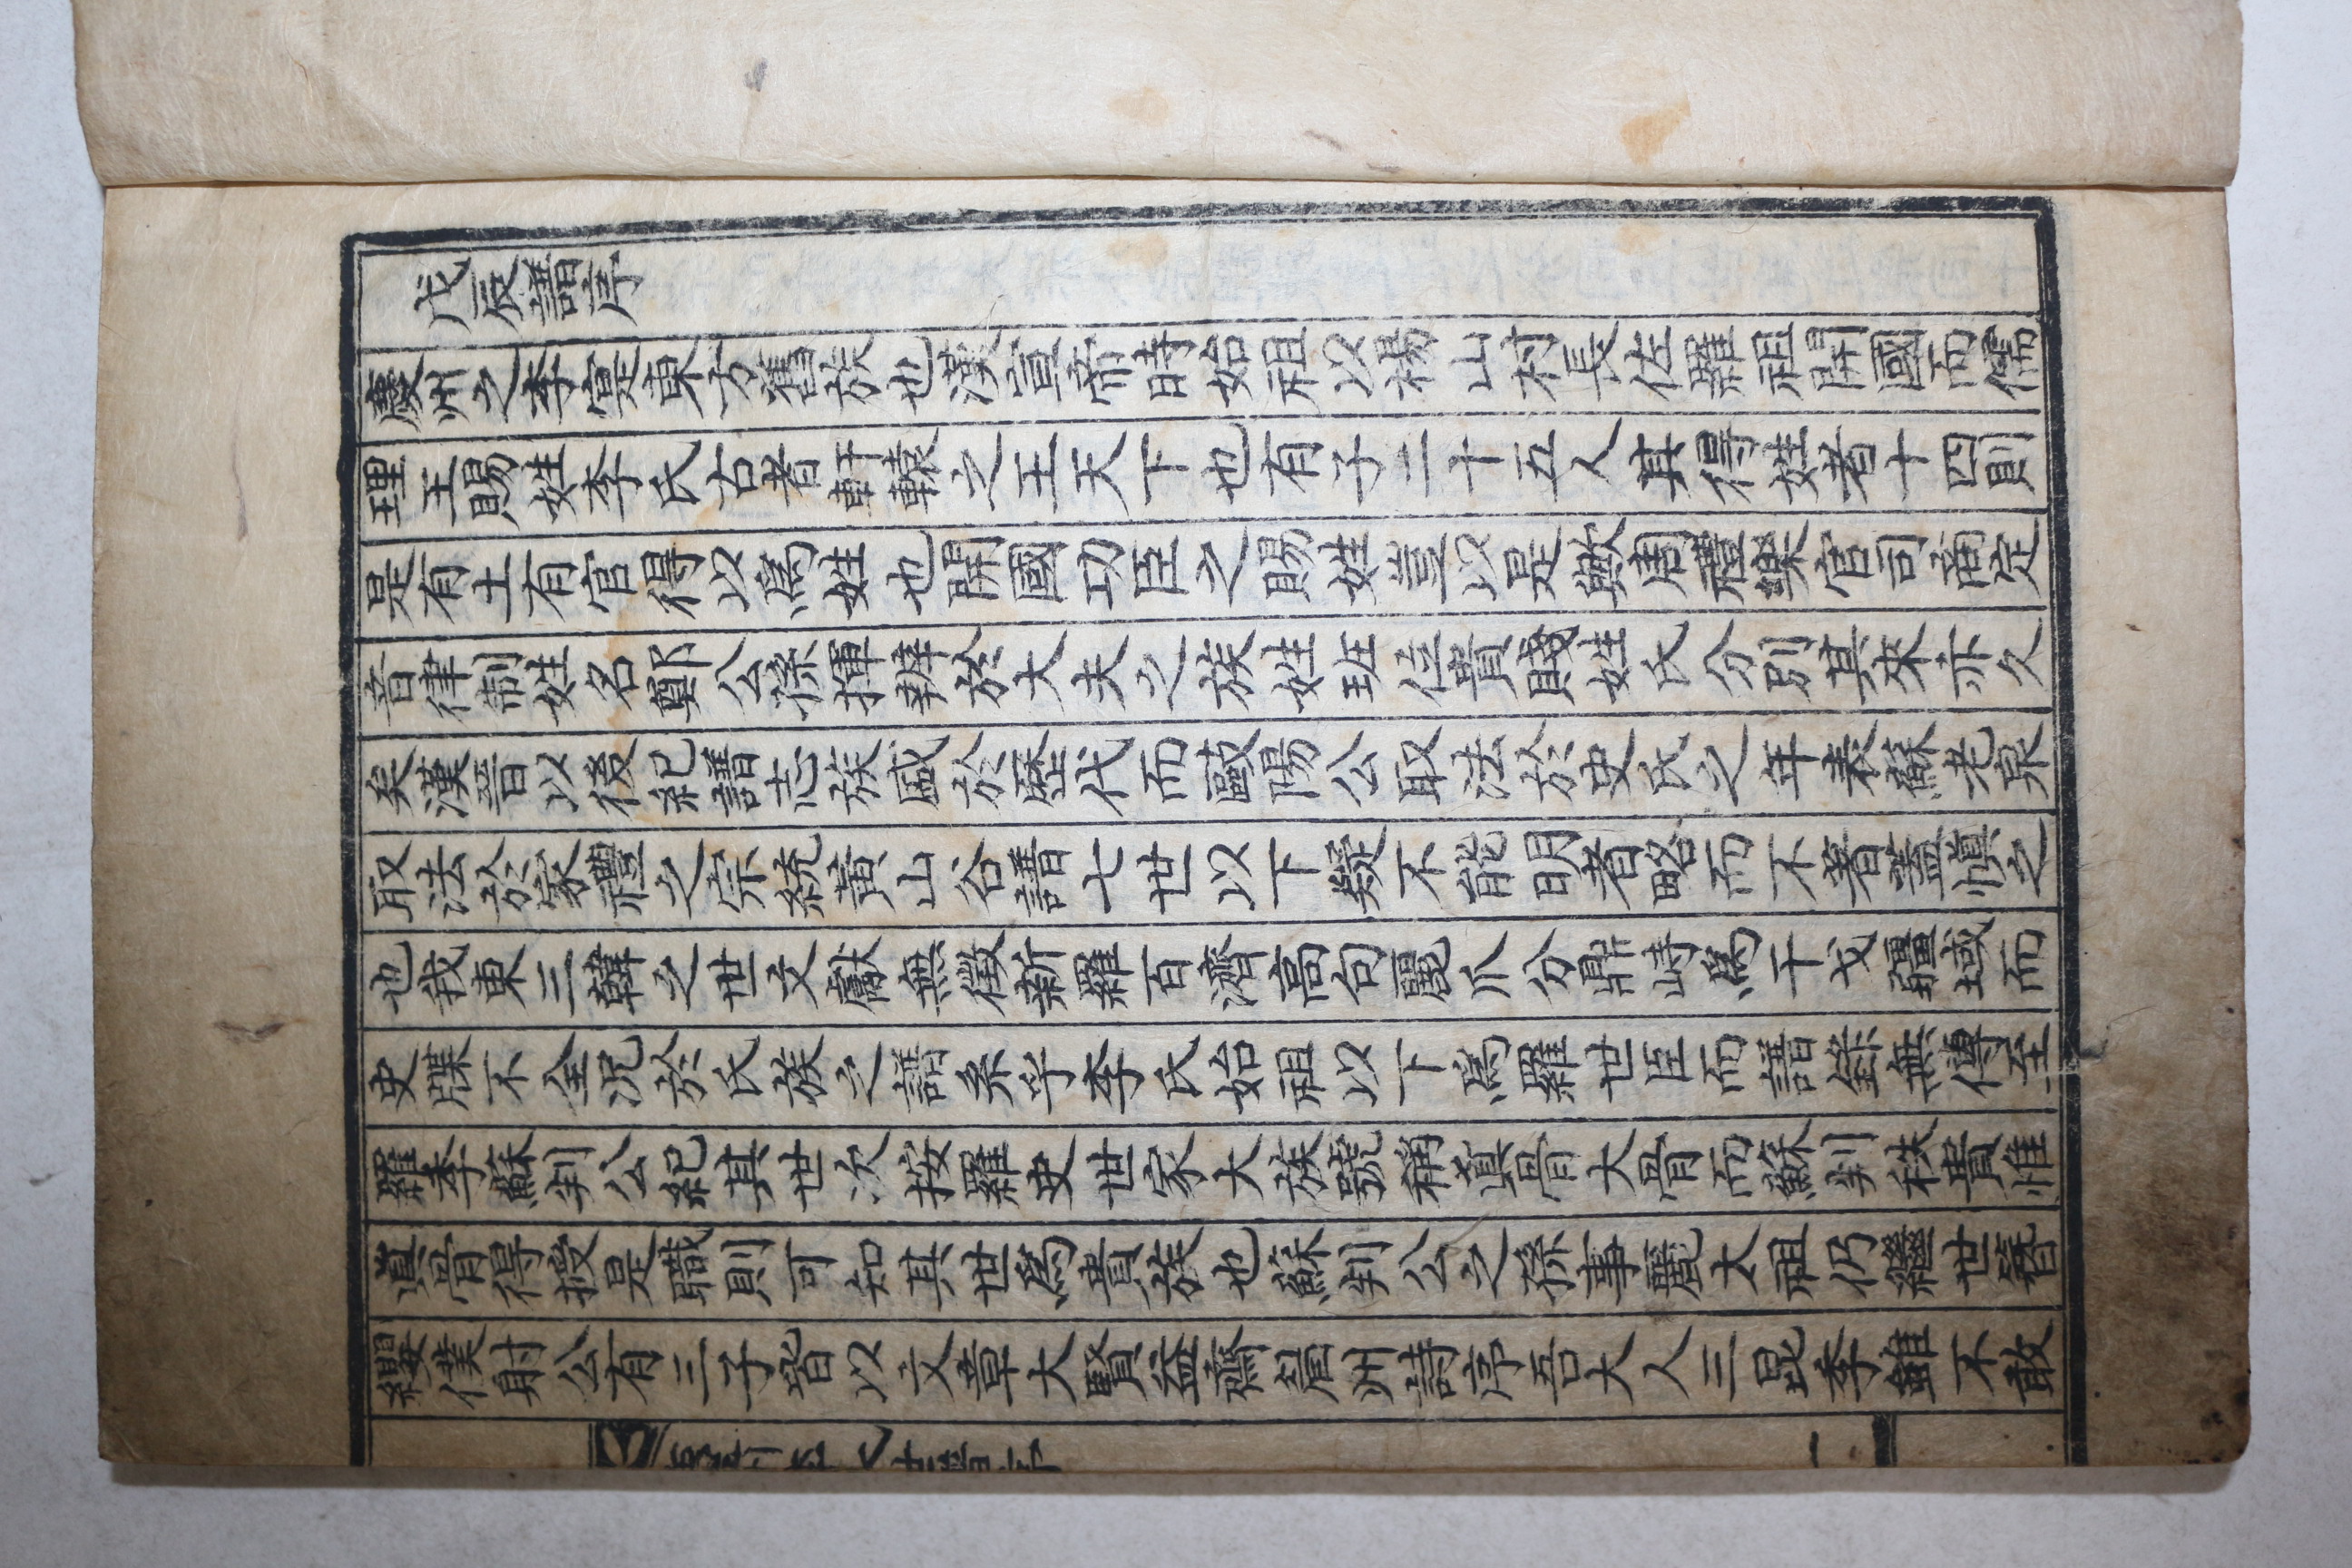 戊辰譜序
慶州之李寔東方舊族也漢宣帝時始祖以楊山村長佐羅祖開國而儒
理王賜姓李氏古者軒轅之王天下也有子二十五人其得姓者十四則
是有土有官得以爲姓也開國功臣之賜姓豈以是歟周禮樂官司商定
音律制姓名鄭公孫揮辨於大夫之族姓班位貴賤姓氏分別其來亦久
矣漢晉以後紀譜志族盛於歷代而歐陽公取法於史氏之年表蘇老泉
取法於家禮之宗統黃山谷譜七世以下疑不能明者略而不著蓋愼之
也我東三韓之世文獻無徵新羅百濟高句麗爪分鼎峙爲干戈疆域而
史牒不全況於氏族之譜系乎李氏始祖以下爲羅世臣而譜錄無傳至
羅季蘇判公紀其世次按羅史世家大族號稱眞骨大骨而蘇判秩貴惟
眞骨得授是職則可知其世爲貴族也蘇判公之孫事麗太祖仍繼世簪
纓僕射公有三子皆以文章大賢益齋簹州詩序吾大人三昆季雖不敢
慶州李氏世譜序 一